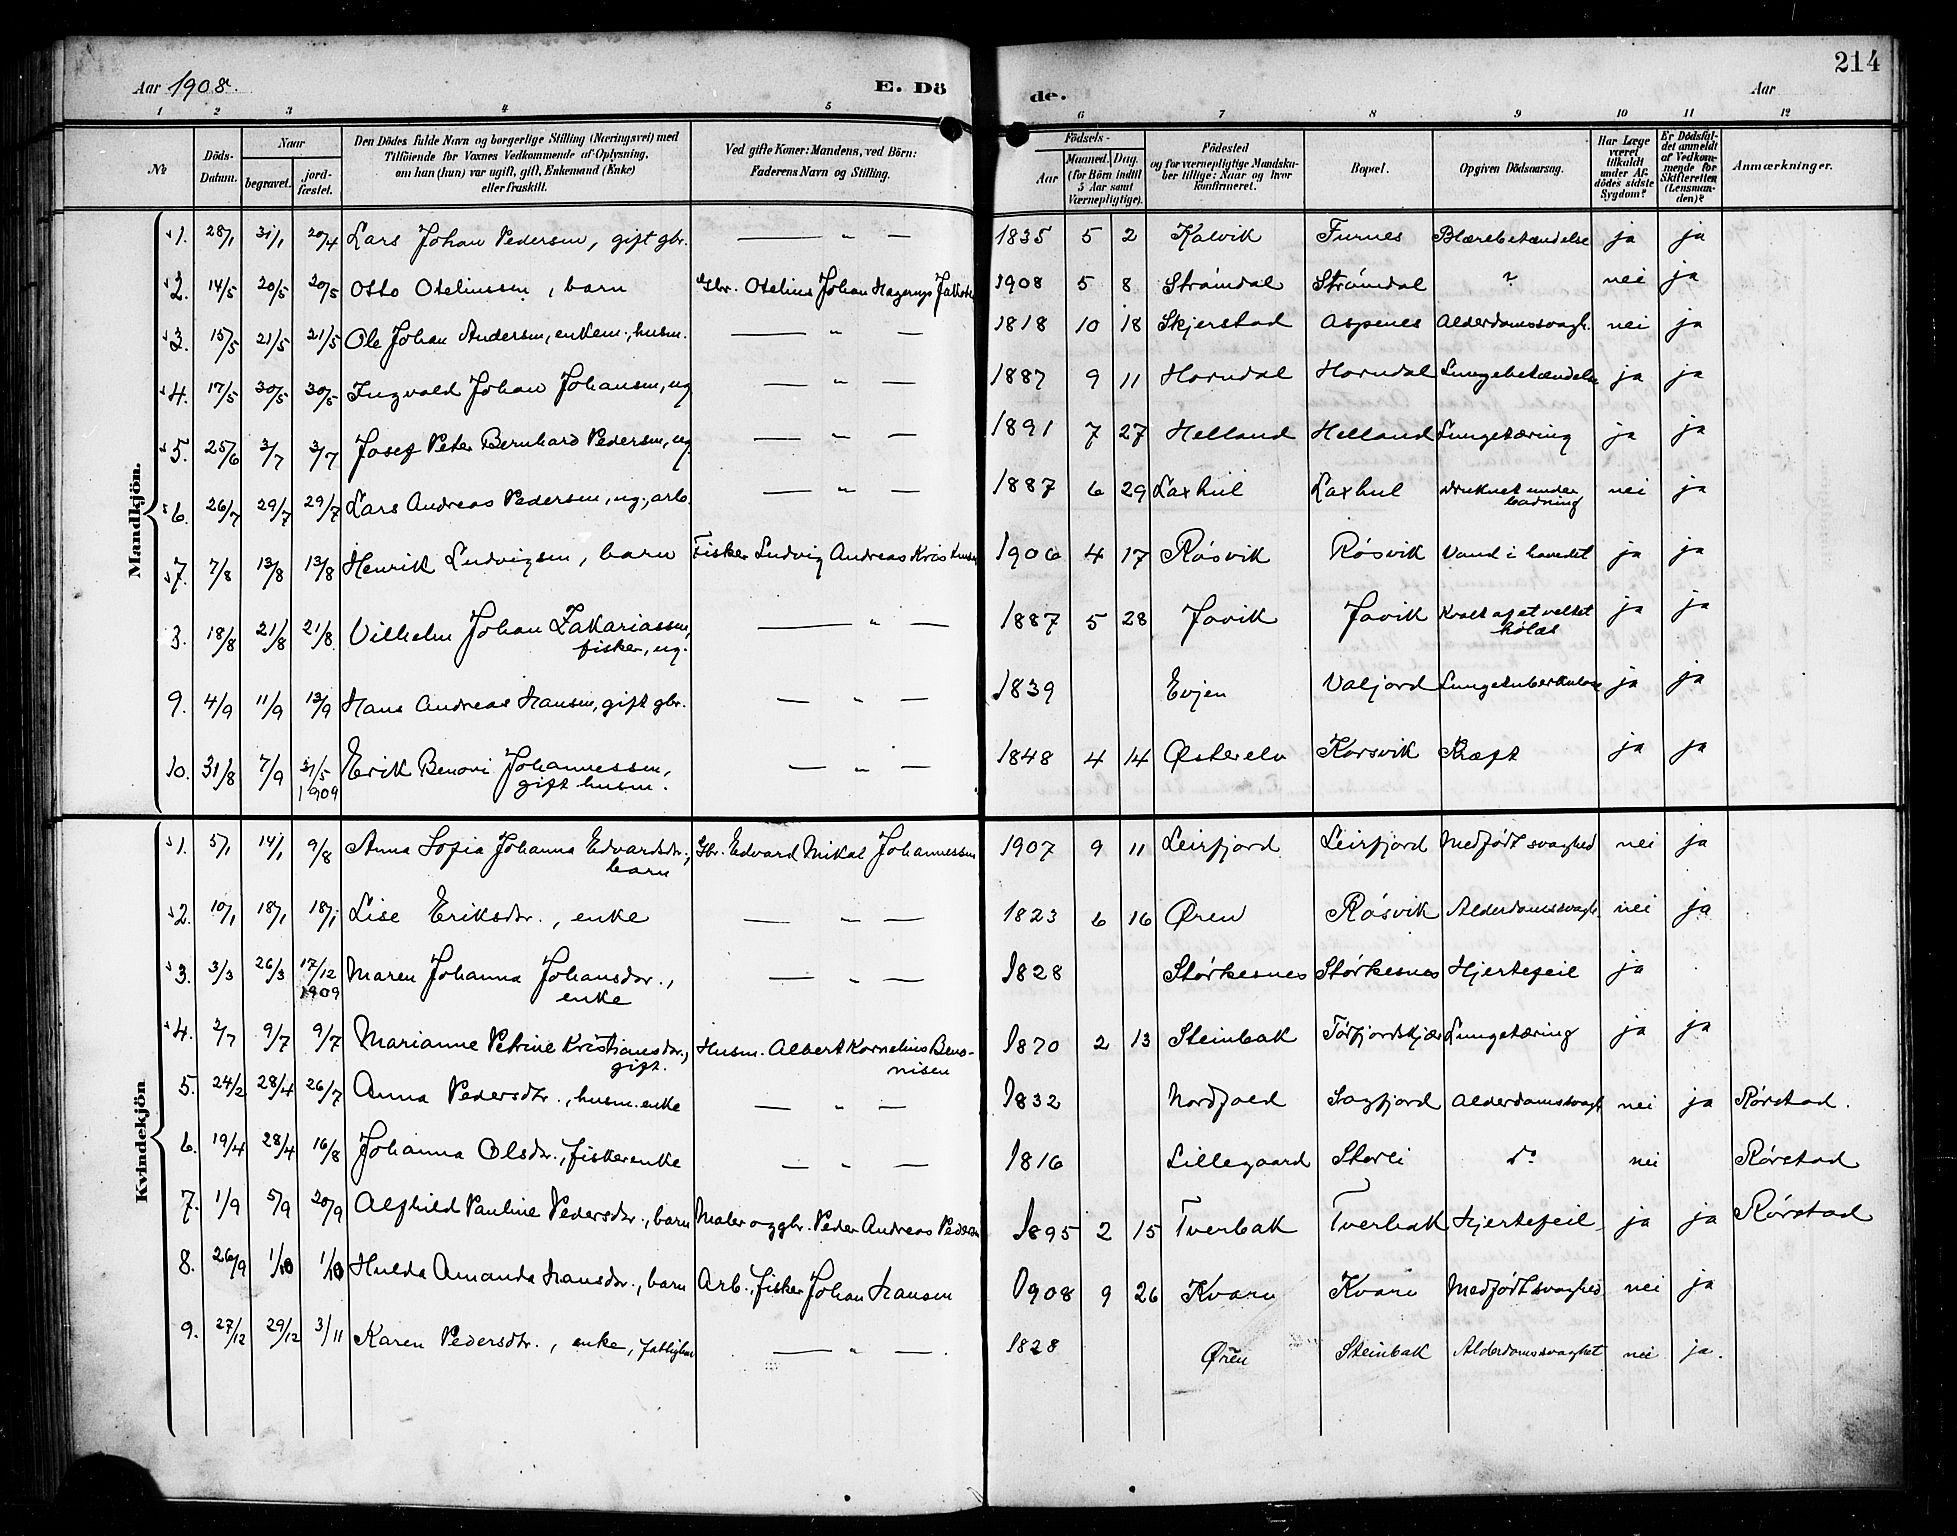 214
Aar 1908. E. Dö de. Aar
1 2 3 4 5 6 7 8 9 10 11 12
No
Döds-Datum.
Naar
begravet. jord-fæstet.
Den Dödes fulde Navn og borgerlige Stilling (Næringsvei) med
Tilföiende for Voxnes Vedkommende af Oplysning,
om han (hun) var ugift, gift, Enkemand (Enke)
eller fraskilt.
Ved gifte Koner: Mandens, ved Börn:
Faderens Navn og Stilling.
Födsels-
Aar Maaned. Dag.
(for Börn indtil
5 Aar samt
Værnepligtige).
Födested
og for værnepligtige Mandsku-
ber tillige: Naar og hvor
konfirmeret.
Bopæl.
Opgiven Dödsaarsag.
Har Læge
været
tilkaldt
under Af-
dödes sidste
Sygdom?
Er Dödsfal-
det anmeldt
af Vedkom-
mende for
Skifteretten
(Lensman-
den)?
Anmærkninger.
Mandkjön.
1. 28/1 31/1 20/4 Lars Johan Pedersen, gift gbr. — " — 1835 5 2 Kalvik Furnes Blærebetændelse ja ja
2. 14/5 20/5 20/5 Otto Oteliussen, barn Gbr. Otelius Johan Hagerup 1908 5 8 Strømdal Strømdal ? nei ja
3. 15/5 21/5 21/5 Ole Johan Andersen, enkem., husm. — " — 1818 10 18 Skjerstad Aspenes Alderdomssvagh. nei ja
4. 17/5 30/5 30/5 Ingvald Johan Johansen, ug — " — 1887 9 11 Horndal Horndal Lungebetændelse ja ja
5. 25/6 3/7 3/7 Josef Peter Bernhard Pedersen, ug. — " — 1891 7 27 Helland Helland Lungetæring ja ja
6. 26/7 29/7 29/7 Lars Andreas Pedersen, ug., arb. — " — 1887 6 29 Laxhul Laxhul druknet under
badning nei ja
7. 7/8 13/8 13/8 Henrik Ludvigsen, barn Fisker Ludvig Andreas Kristensen 1906 4 17 Røsvik Røsvik Vand i hovedet ja ja
8. 18/8 21/8 21/8 Vilhelm Johan Zakariassen,
fisker, ug. — " — 1887 5 28 Jovik Jovik Kvalt af et veltet
hølæs ja ja
9. 4/9 11/9 13/9 Hans Andreas Hansen, gift gbr. — " — 1839 Evjen Valjord Lungetuberkulose ja ja
10. 31/8 7/9 31/5
1909 Erik Benoni Johannessen,
gift husm. — " — 1848 4 14 Østerelv Korsvik Kræft ja ja
Kvindekjön
1. 5/1 14/1 9/8 Anna Sofia Johanna Edvardsdr.,
barn Gbr. Edvard Mikal Johannessen 1907 9 11 Leirfjord Leirfjord Medfødt svaghed nei ja
2. 10/1 18/1 18/1 Lise Eriksdr., enke — " — 1823 6 16 Øren Røsvik Alderdomssvagh. nei ja
3. 3/3 26/3 17/12
1909 Maren Johanna Johansdr.,
enke — " — 1828 Størkesnes Størkesnes Hjertefeil ja
4. 2/7 9/7 9/7 Marianne Petrine Kristiansdr.,
gift. Husm. Albert Kornelius Beno-
nisen 1870 2 13 Steinbak Tørfjordskjær Lungetæring ja ja
5. 24/2 28/4 26/7 Anna Pedersdtr., husm. enke — " — 1832 Nordfold Sagfjord Alderdomssvagh nei ja Rørstad.
6. 19/4 28/4 16/8 Johanna Olsdr., fiskerenke — " — 1816 Lillegaard Storli do nei Rørstad
7. 1/9 5/9 20/9 Alfhild Pauline Pedersdr., barn Maler og gbr. Peder Andreas Pedersen 1895 2 15 Tverbak Tverbak Hjertefeil ja ja Rørstad
8. 26/9 1/10 1/10 Hulda Amanda Hansdr., barn Arb., fisker Johan Hansen 1908 9 26 Kvarv Kvarv Medfødt svaghed nei ja
9. 27/12 29/12 3/11 Karen Pedersdtr., enke, — " — 1828 Øren Steinbak Alderdomssvaghet nei ja.